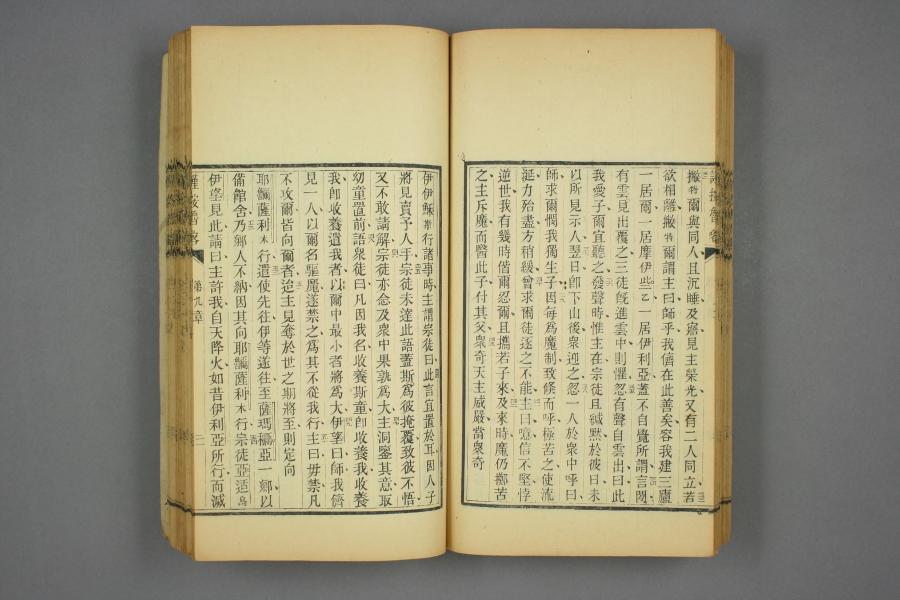 撇爾與同人且沉睡及寤見主榮光又有二人同立若
欲相離撇爾謂主曰師乎我儕在此善矣容我建三廬
一居爾一居摩伊些一居伊利亞蓋不自覺所謂言間
有雲見出覆之三徒旣進雲中則懼忽有聲自雲出曰此
我愛子爾宜聽之發聲時惟主在宗徒且緘黙於彼日未
以所見示人翌日卽下山後衆迎之忽一人於衆中呼曰
師求爾憫我獨生子因每爲魔制致倐而呼極苦之使流
涎力殆盡方稍緩曾求爾徒逐之不能主曰噫信不堅悖
逆世我有幾時偕爾忍爾且攜若子來及來時魔仍擲苦
之主斥魔而醫此子付其父衆奇天主威嚴當衆奇
伊伊穌行諸事時主謂宗徒曰此言宜置於耳因人子
將見賣予人手宗徒未達此語蓋斯爲彼掩覆致彼不悟
又不敢請解宗徒亦念及衆中果孰爲大主洞鑒其意取
幼童置前語衆徒曰凡因我名收養斯童卽收養我收養
我卽收養遣我者以爾中最小者將爲大伊望曰師我儕
見一人以爾名驅魔遂禁之爲其不從我行主曰毋禁凡
不攻爾皆向爾者迨主見奪於世之期將至則定向
耶薩利行遣使先往伊等遂往至薩瑪亞一鄉以
備館舍乃鄉人不納因其向耶薩利行宗徒亞适
伊望見此請曰主許我自天降火如昔伊利亞所行而滅
第九章